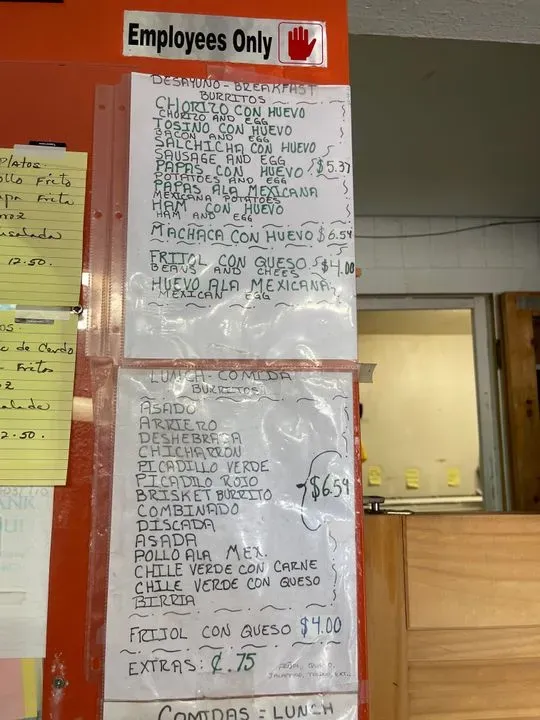 Employees Only
DESAYUNO - BREAKFAST
BURRITOS
CHORIZO CON HUEVO
CHORIZO AND EGG
TOSINO CON HUEVO
BACON AND EGG
SALCHICHA CON HUEVO
SAUSAGE AND EGG
PAPAS CON HUEVO $5.37
POTATOES AND EGG
PAPAS ALA MEXICANA
MEXICANA POTATOES
HAM CON HUEVO
HAM AND EGG
MACHACA CON HUEVO $6.54
FRIJOL CON QUESO $4.00
BEANS AND CHEES
HUEVO ALA MEXICANA
MEXICAN EGG
LUNCH - COMIDA
BURRITOS
ASADO
ARRIERO
DESHEBRADA
CHICHARRON
PICADILLO VERDE
PICADILO ROJO
BRISKET BURRITO $6.54
COMBINADO
DISCADA
ASADA
POLLO ALA MEX.
CHILE VERDE CON CARNE
CHILE VERDE CON QUESO
BIRRIA
FRIJOL CON QUESO $4.00
EXTRAS: ¢.75
COMIDAS = LUNCH
Platos.
Frito
Frita
12.50.
de Cerdo
Fritos
2.50.